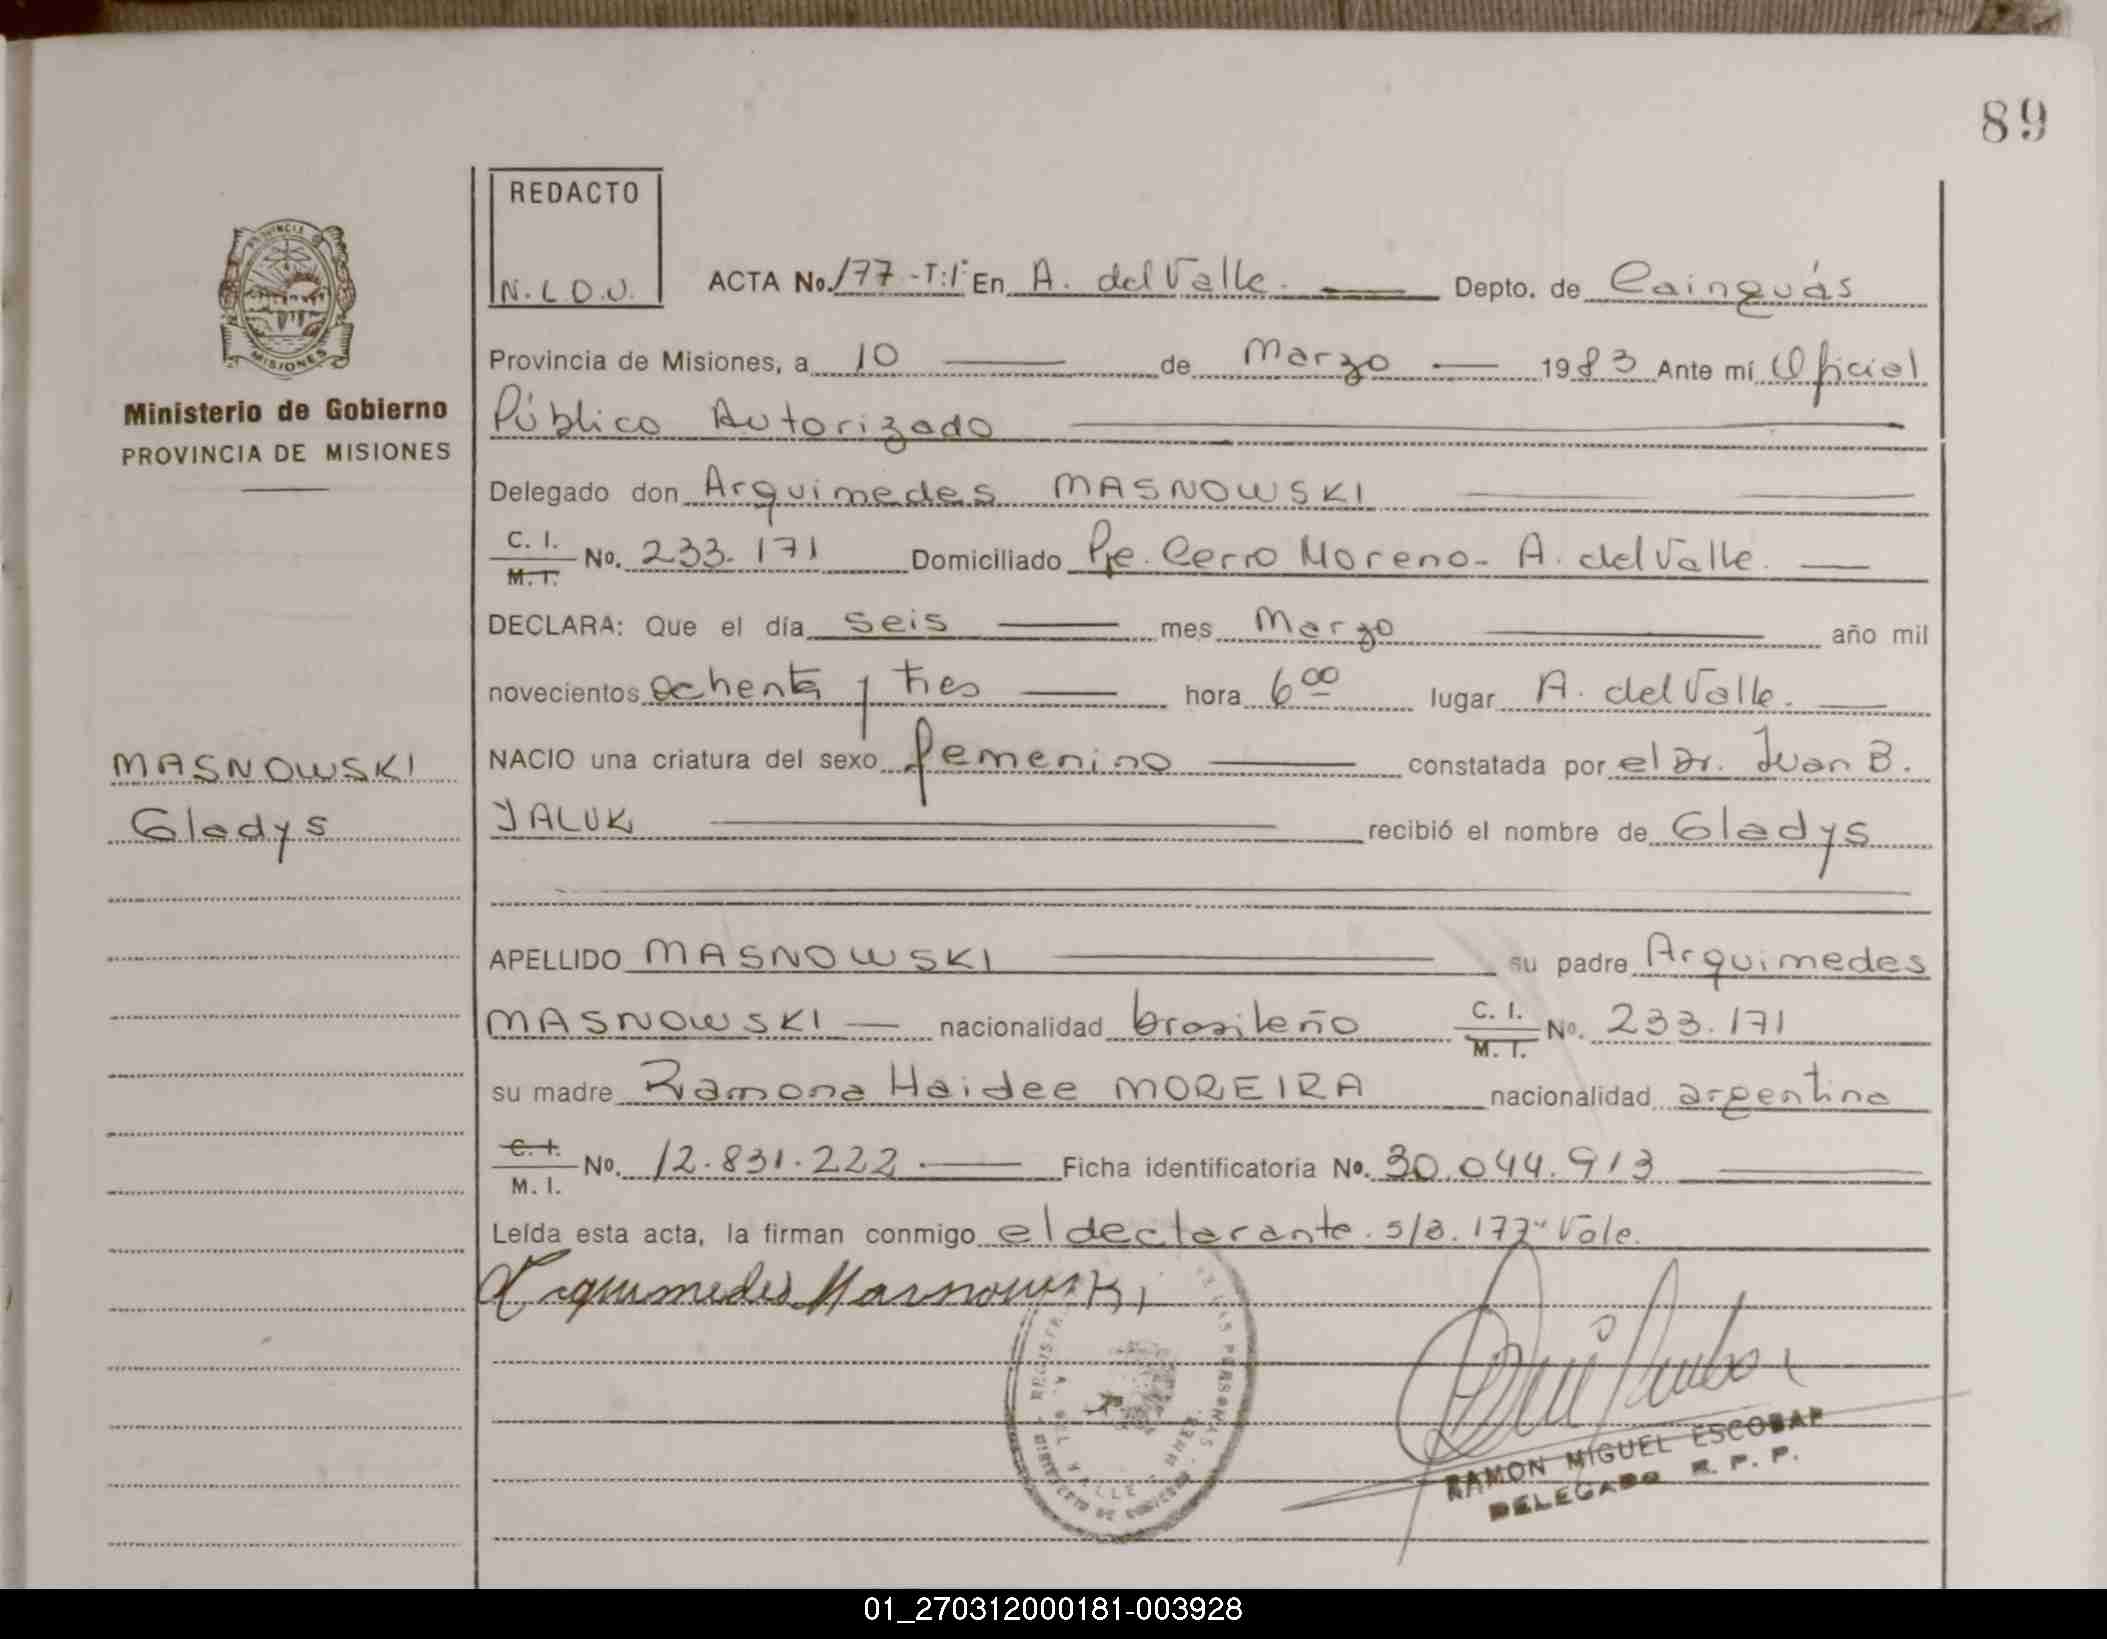 89
REDACTO
N.L.D.U.
ACTA No. 177 -T:1° En A. del Valle. Depto. de Cainguás
Provincia de Misiones, a 10 de Marzo 1983 Ante mí Oficial
Ministerio de Gobierno
PROVINCIA DE MISIONES
Público Autorizado
Delegado don Arquimedes MASNOWSKI
C. I.
M. I. No. 233.171 Domiciliado Pje. Cerro Moreno- A. del Valle.
DECLARA: Que el día seis mes Marzo año mil
novecientos ochenta y tres hora 6 00 lugar A. del Valle.
NACIO una criatura del sexo femenino constatada por el Dr. Juan B.
MASNOWSKI
Gladys
YALUK recibió el nombre de Gladys
APELLIDO MASNOWSKI su padre Arquimedes
MASNOWSKI nacionalidad brasileño C. I.
M. I. No. 233.171
su madre Ramona Haidee MOREIRA nacionalidad argentina
C. I.
M. I. No. 12.831.222 Ficha identificatoria No. 30.044.913
Leída esta acta, la firman conmigo el declarante. s/a. 177" Vale.
Arquimedes Masnowski
RAMON MIGUEL ESCOBAR
DELEGADO R. P. P.
MISIONES
01_270312000181-003928